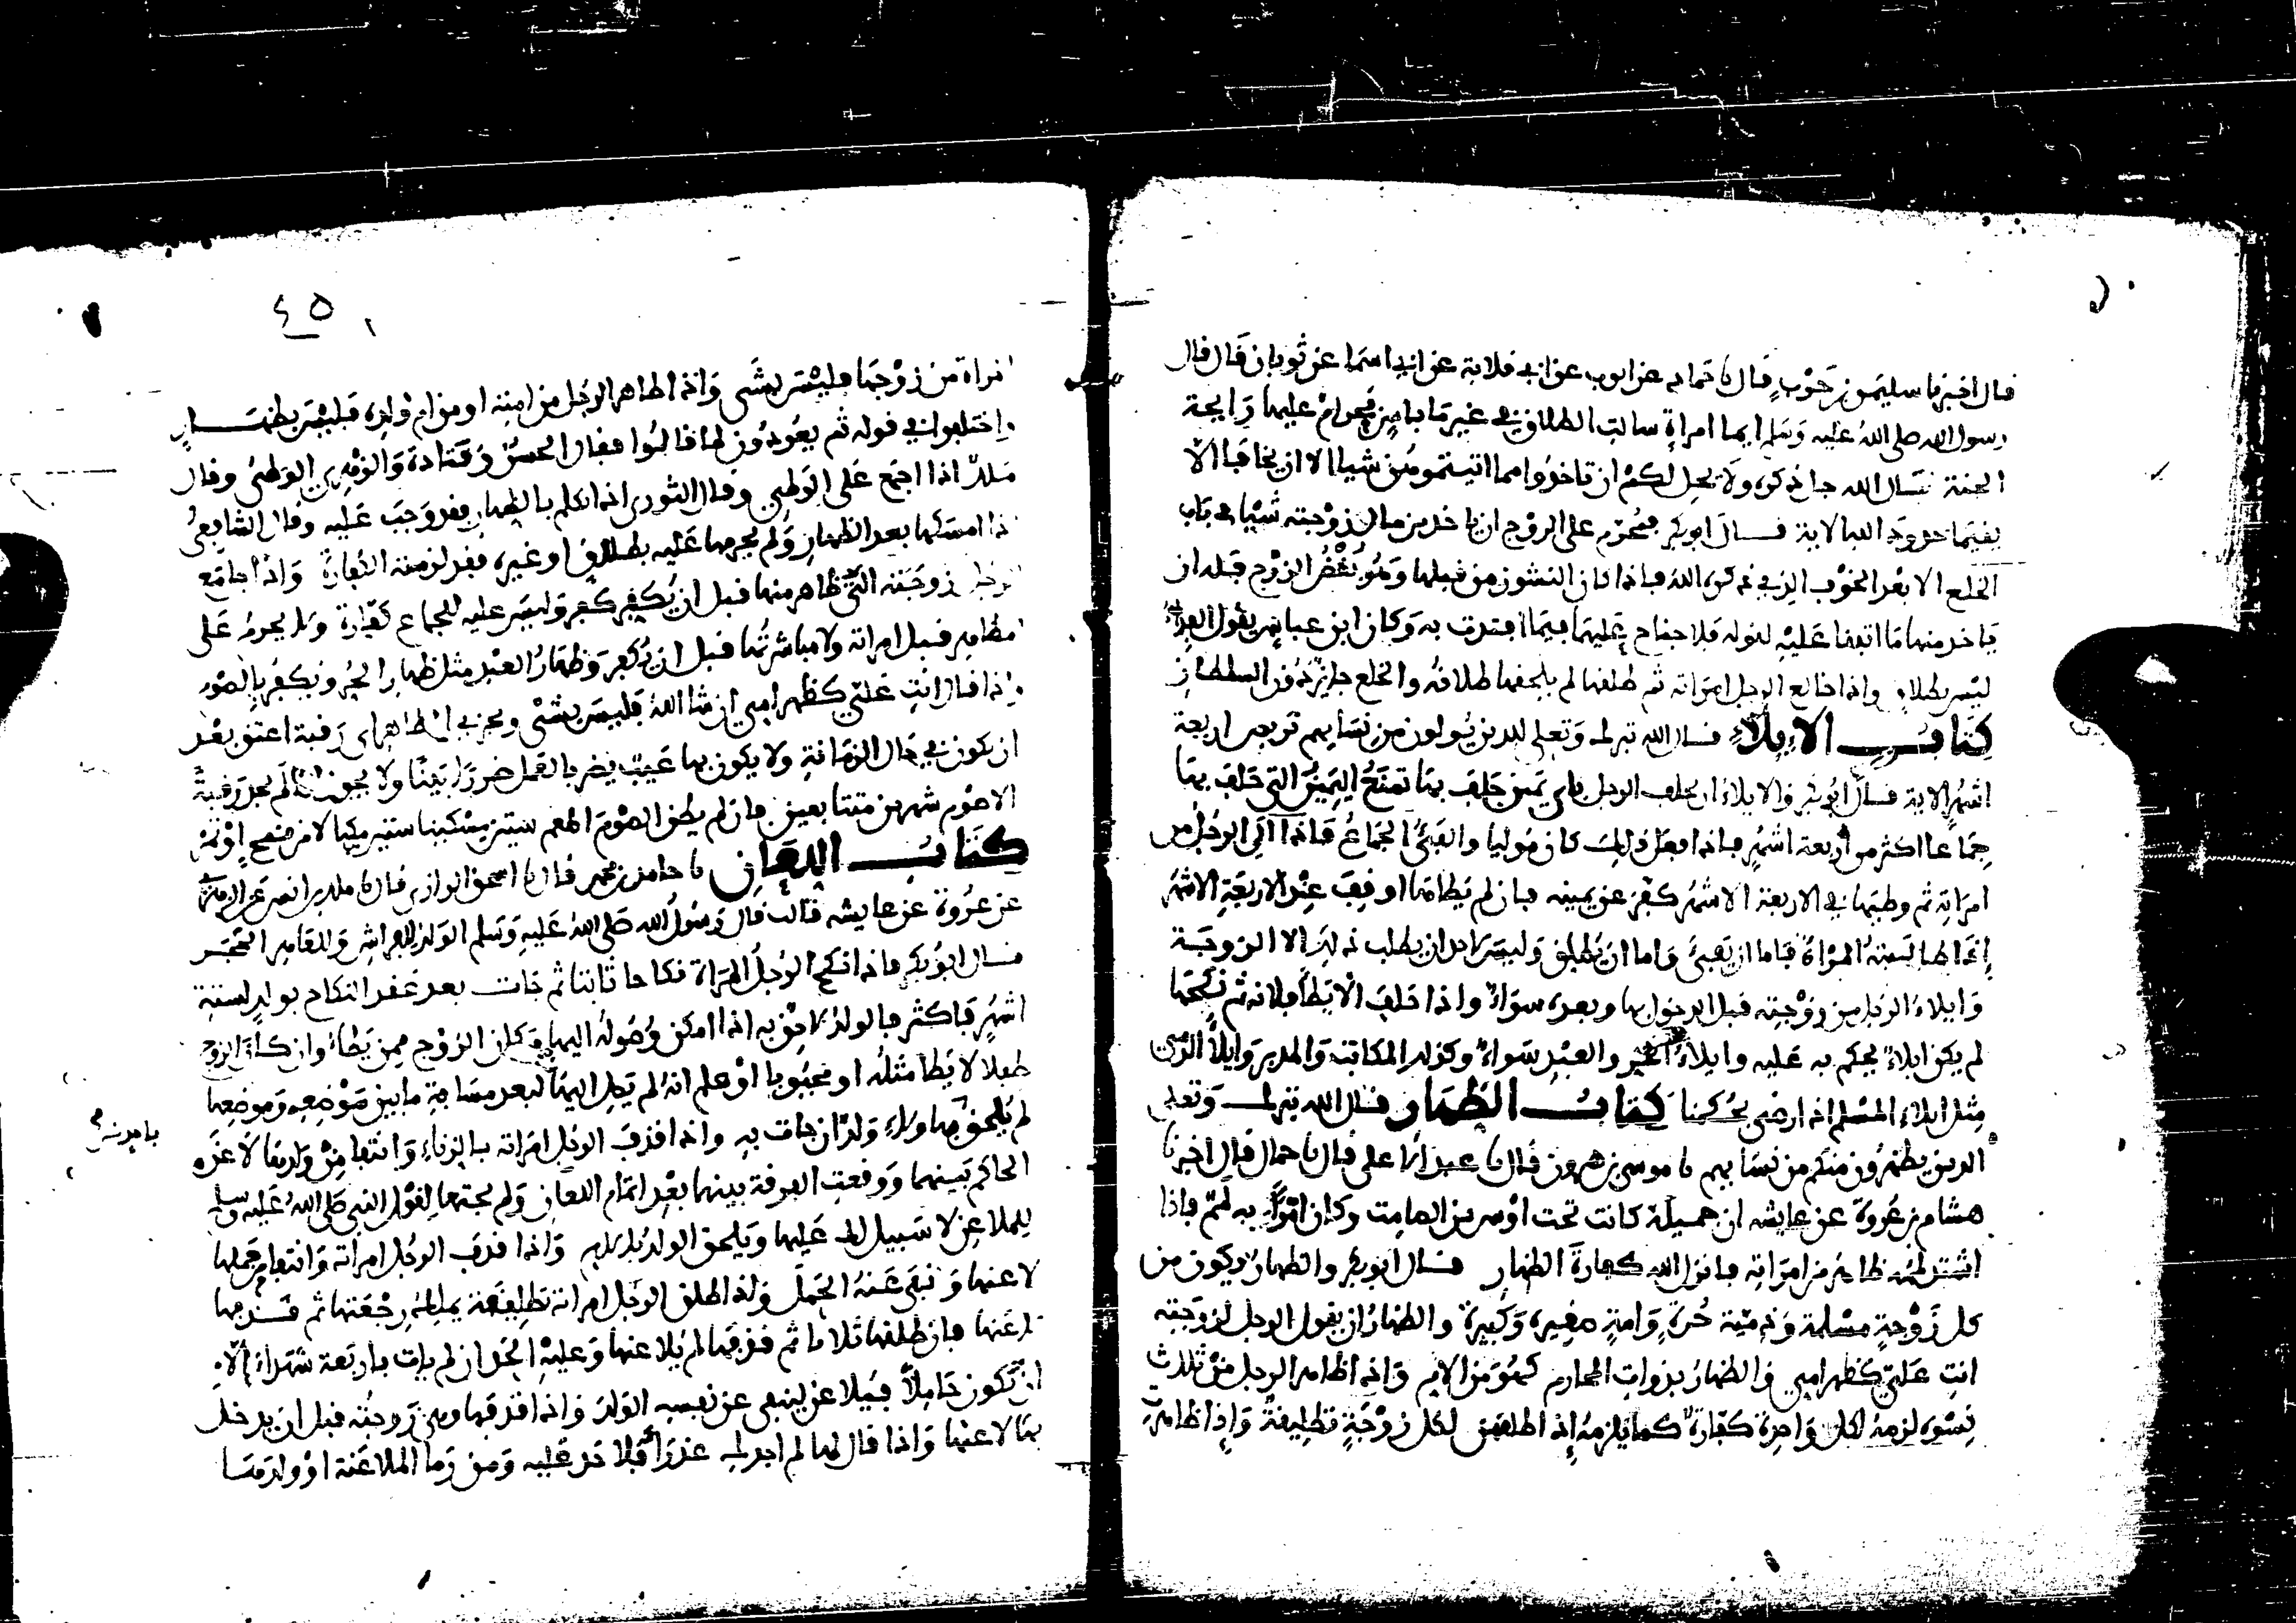 قال اخبرنا سليمن بن حرب قال نا حماد عن ايوب عن ابي قلابة عن ابي اسما عن ثوبان قال قال
رسول الله صلى الله عليه وسلم ايما امراة سالت الطلاق في غير ما باس فحرام عليها رايحة
الجنة قال الله جل ذكره ولا يحل لكم ان تاخذوا مما اتيتموهن شيا الا ان يخافا الا
يقيما حدود الله الاية قال ابو بكر فحرم على الزوج ان ياخذ من مال زوجته شيا في باب
الخلع الا بعد الخوف الذي ذكره الله فاذا كان النشوز من قبلها وهو بغض الزوج فله ان
ياخذ منها ما اتفقا عليه لقوله فلا جناح عليهما فيما افتدت به وكان ابن عباس يقول الفدا
ليس بطلاق واذا خالع الرجل امراته ثم طلقها لم يلحقها طلاقه والخلع جايز دون السلطان
كتاب الايلاء قال الله تبرك وتعلى للذين يولون من نسايهم تربص اربعة
اشهر الاية قال ابو بكر والايلاء ان يحلف الرجل باي يمين حلف بها تمنع اليمين التي حلف بها
جماعا اكثر من اربعة اشهر فاذا فعل ذلك كان موليا والفيئ الجماع فاذا الى الرجل من
امراته ثم وطيها في الاربعة الاشهر كفر عن يمينه فان لم يطاها اوقف عند الاربعة الاشهر
اذا طالبته المراة فاما ان يفيئ واما ان يطلق وليس لاحد ان يطلب ذلك الا الزوجة
وايلاء الرجل من زوجته قبل الدخول بها وبعده سواء واذا حلف الا يطا فلانه ثم نكحها
لم يكن ايلاء يحكم به عليه وايلاء الحر والعبد سواء وكذلك المكاتب والمدبر وايلا الذمي
مثل ايلاء المسلم اذا رضي بحكمنا كتاب الظهار قال الله تبرك وتعلى
الذين يظهرون منكم من نسايهم نا موسى بن هرون قال نا عبد الاعلى قال نا حماد قال اخبرنا
هشام بن عروة عن عايشه ان جميلة كانت تحت اوس بن الصامت وكان امرا به لمم فاذا
اشتد لممه ظاهر من امراته فانزل الله كفارة الظهار قال ابو بكر والظهار يكون من
كل زوجة مسلمة وذمية حرة وامة صغيرة وكبيرة والظهار ان يقول الرجل لزوجته
انت علي كظهر امي والظهار بذوات المحارم كهو من الام واذا ظاهر الرجل من ثلاث
نسوه لزمه لكل واحدة كفارة كما يلزمه اذا طلقهن لكل زوجة تطليقة واذا ظاهرت
٤٥
امراة من زوجها فليس بشي واذا ظاهر الرجل من امته او من ام ولده فليس بظهار
واختلفوا في قوله ثم يعودون لما قالوا فقال الحسن وقتادة والزهري الوطئ وقال
ملك اذا اجمع على الوطي وقال الثوري اذا تكلم بالظهار فقد وجب عليه وقال الشافعي
اذا امسكها بعد الظهار ولم يحرمها عليه بطلاق او غيره فقد لزمته الكفارة واذا جامع
الرجل زوجته التي ظاهر منها قبل ان يكفر كفر وليس عليه للجماع كفارة ولا يحرم على
المظاهر قبل امراته ولا مباشرتها قبل ان يكفر وظهار العبد مثل ظهار الحر ويكفر بالصوم
واذا قال انت علي كظهر امي ان شا الله فليس بشئ ويجزي المظاهر اي رقبة اعتق بعد
ان يكون في حال الزمانة ولا يكون بها عيب يضر بالعمل ضررا بينا ولا يجوز لمن لم يجد رقبة
الا صوم شهرين متتابعين فان لم يطق الصوم اطعم ستين مسكينا ستين مكيلا من قمح او تمر
كتاب اللعان نا حامد بن محمد قال نا اسحق الرازي قال نا ملك بن انس عن الزهري
عن عروة عن عايشه قالت قال رسول الله صلى الله عليه وسلم الولد للفراش وللعاهر الحجر
قال ابو بكر فاذا نكح الرجل المراة نكاحا ثابتا ثم جات بعد عقد النكاح بولد لستة
اشهر فاكثر فالولد لاحق به اذا امكن وصوله اليها وكان الزوج ممن يطا وان كان الزوج
طفلا لا يطا مثله او مجبوبا او علم انه لم يصل اليها لبعد مسافة ما بين موضعه وموضعها
لم يلحق بها ولا ولد ان جات به واذا قذف الرجل امراته بالزناء وانتفا من ولدها لاعن
الحاكم بينهما ووقعت الفرقة بينهما بعد اتمام اللعان ولم يجتمعا لقول النبي صلى الله عليه وسلم
للملاعن لا سبيل لك عليها ويلحق الولد بامه واذا قذف الرجل امراته وانتفا من حملها
لاعنها ونفى عنه الحمل واذا طلق الرجل امراته تطليقة يملك رجعتها ثم قذفها
لاعنها فان طلقها ثلاثا ثم قذفها لم يلاعنها وعليه الحد ان لم يات باربعة شهداء الا
ان تكون حاملا فيلاعن لينفي عن نفسه الولد واذا قذفها وهي زوجته قبل ان يدخل
بها لاعنها واذا قال لها لم اجدك عذرا فلا حد عليه ومن رما الملاعنة او ولدها